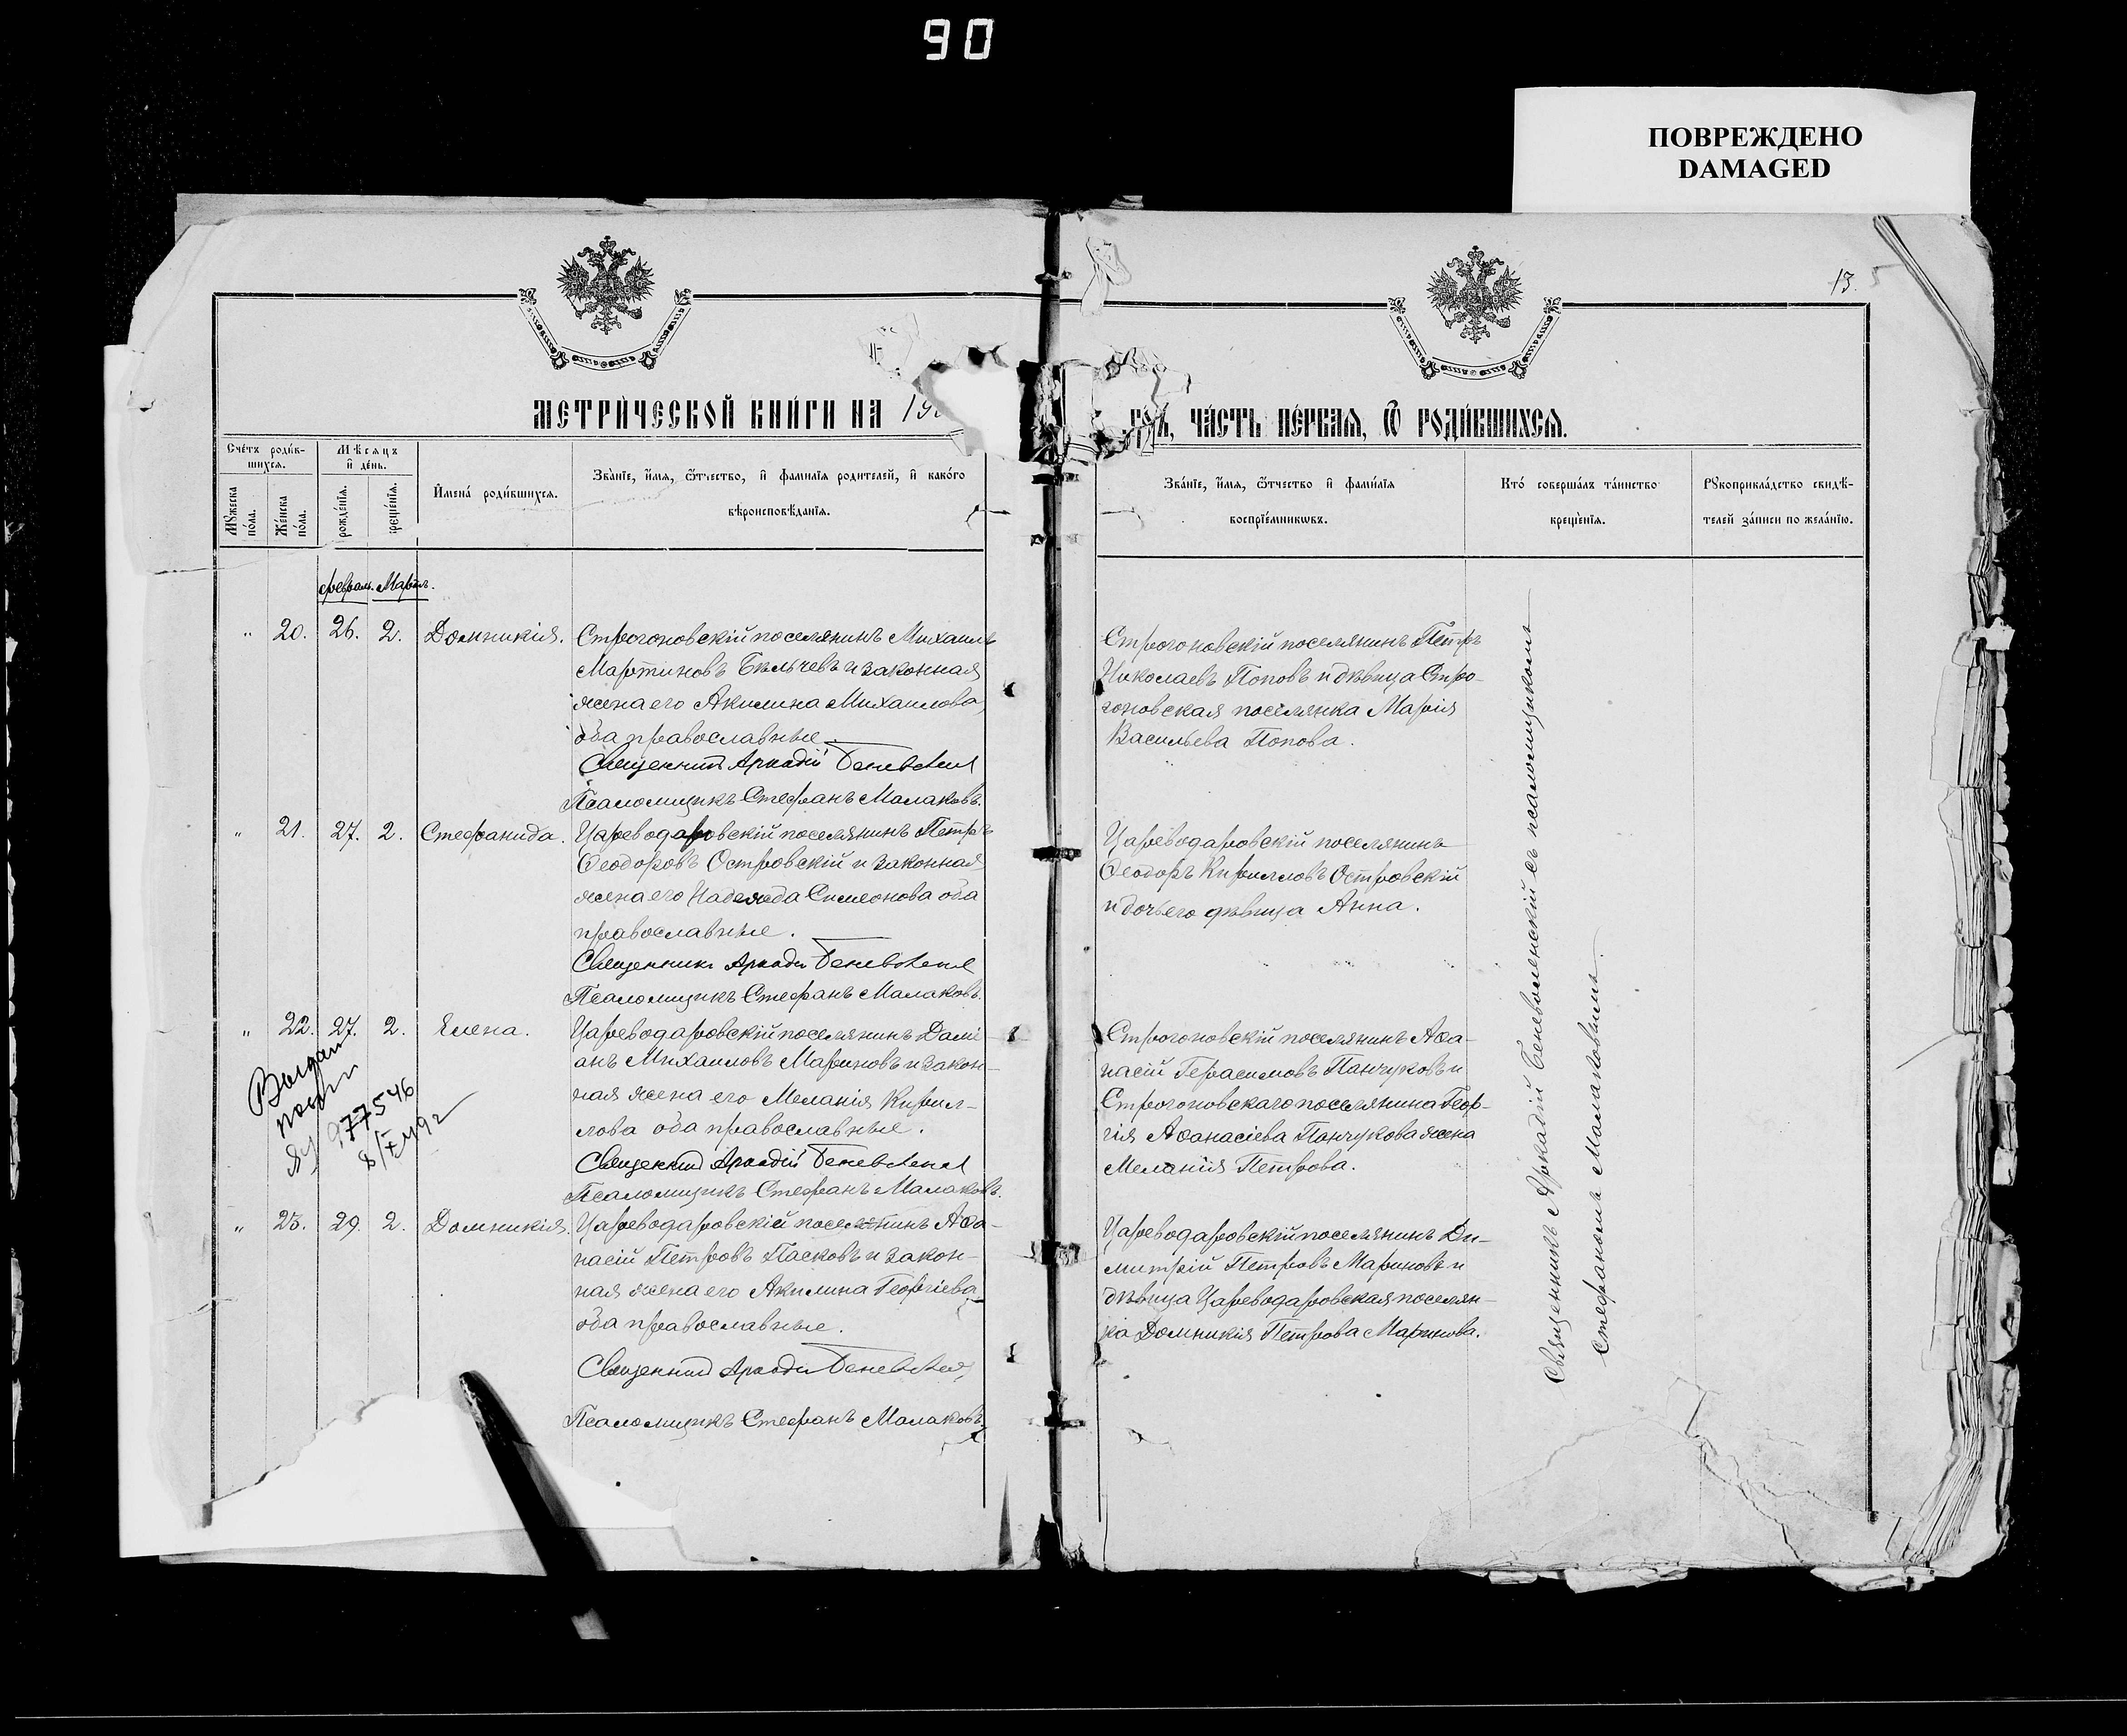 90
ПОВРЕЖДЕНО
DAMAGED
13.
МЕТРИ́ЧЕСКОЙ КНИ́ГИ НА
ГО́ДЪ, ЧА́СТЬ ПЕ́РВАЯ, Ѽ РОДИ́ВШИХСЯ.
Сче́тъ роди́в-
шихся.
Мѣсяцъ
и҆ де́нь.
Мꙋжеска по́ла.
Же́нска по́ла.
рожде́нїѧ.
креще́нїѧ.
И҆мена́ роди́вшихсѧ.
Зва́нїе, и҆́мѧ, ѻ҆́тчество, и҆ фами́лїѧ роди́телей, и҆ како́гѡ
вѣроисповѣ́данїѧ.
Зва́нїе, и҆́мѧ, ѻ҆́тчество и҆ фами́лїѧ
воспрїе́мникѡвъ.
Кто́ соверша́лъ та́инство
креще́нїѧ.
Рꙋкоприкла́дство свидѣ́-
телей за́писи по жела́нїю.
Февраль. Мартъ.
" 20. 26. 2. Домникія. Строгоновскій поселянинъ Михаилъ
Мартиновъ Бѣльчевъ и законная
жена его Акилина Михаилова,
оба православные.
Священникъ Аркадій Беневоленскій
Псаломщикъ Стефанъ Малаковъ.
Строгоновскій поселянинъ Петръ
Николаевъ Поповъ и дѣвица Стро-
гоновская поселянка Марія
Васильева Попова.
" 21. 27. 2. Стефанида. Цареводаровскій поселянинъ Петръ
Ѳеодоровъ Островскій и законная
жена его Надежда Симеонова оба
православные.
Священникъ Аркадій Беневоленскій
Псаломщикъ Стефанъ Малаковъ.
Цареводаровскій поселянинъ
Ѳеодоръ Кирилловъ Островскій
и дочь его дѣвица Анна.
" 22. 27. 2. Елена. Цареводаровскій поселянинъ Дамі-
анъ Михаиловъ Мариновъ и закон-
ная жена его Меланія Кирил-
лова оба православные.
Священникъ Аркадій Беневоленскій
Псаломщикъ Стефанъ Малаковъ.
Строгоновскій поселянинъ Аѳа-
насій Герасимовъ Панчуковъ и
Строгоновскаго поселянина Геор-
гія Аѳанасіева Панчукова жена
Меланія Петрова.
977546
" 23. 29. 2. Домникія. Цареводаровскій поселянинъ Аѳа-
насій Петровъ Пасковъ и закон-
ная жена его Акилина Георгіева
оба православные.
Священникъ Аркадій Беневоленскій
Псаломщикъ Стефанъ Малаковъ.
Цареводаровскій поселянинъ Ди-
митрій Петровъ Мариновъ и
дѣвица Цареводаровская поселян-
ка Домникія Петрова Маринова.
Священникъ Аркадій Беневоленскій съ псаломщикомъ
Стефаномъ Малаковымъ.